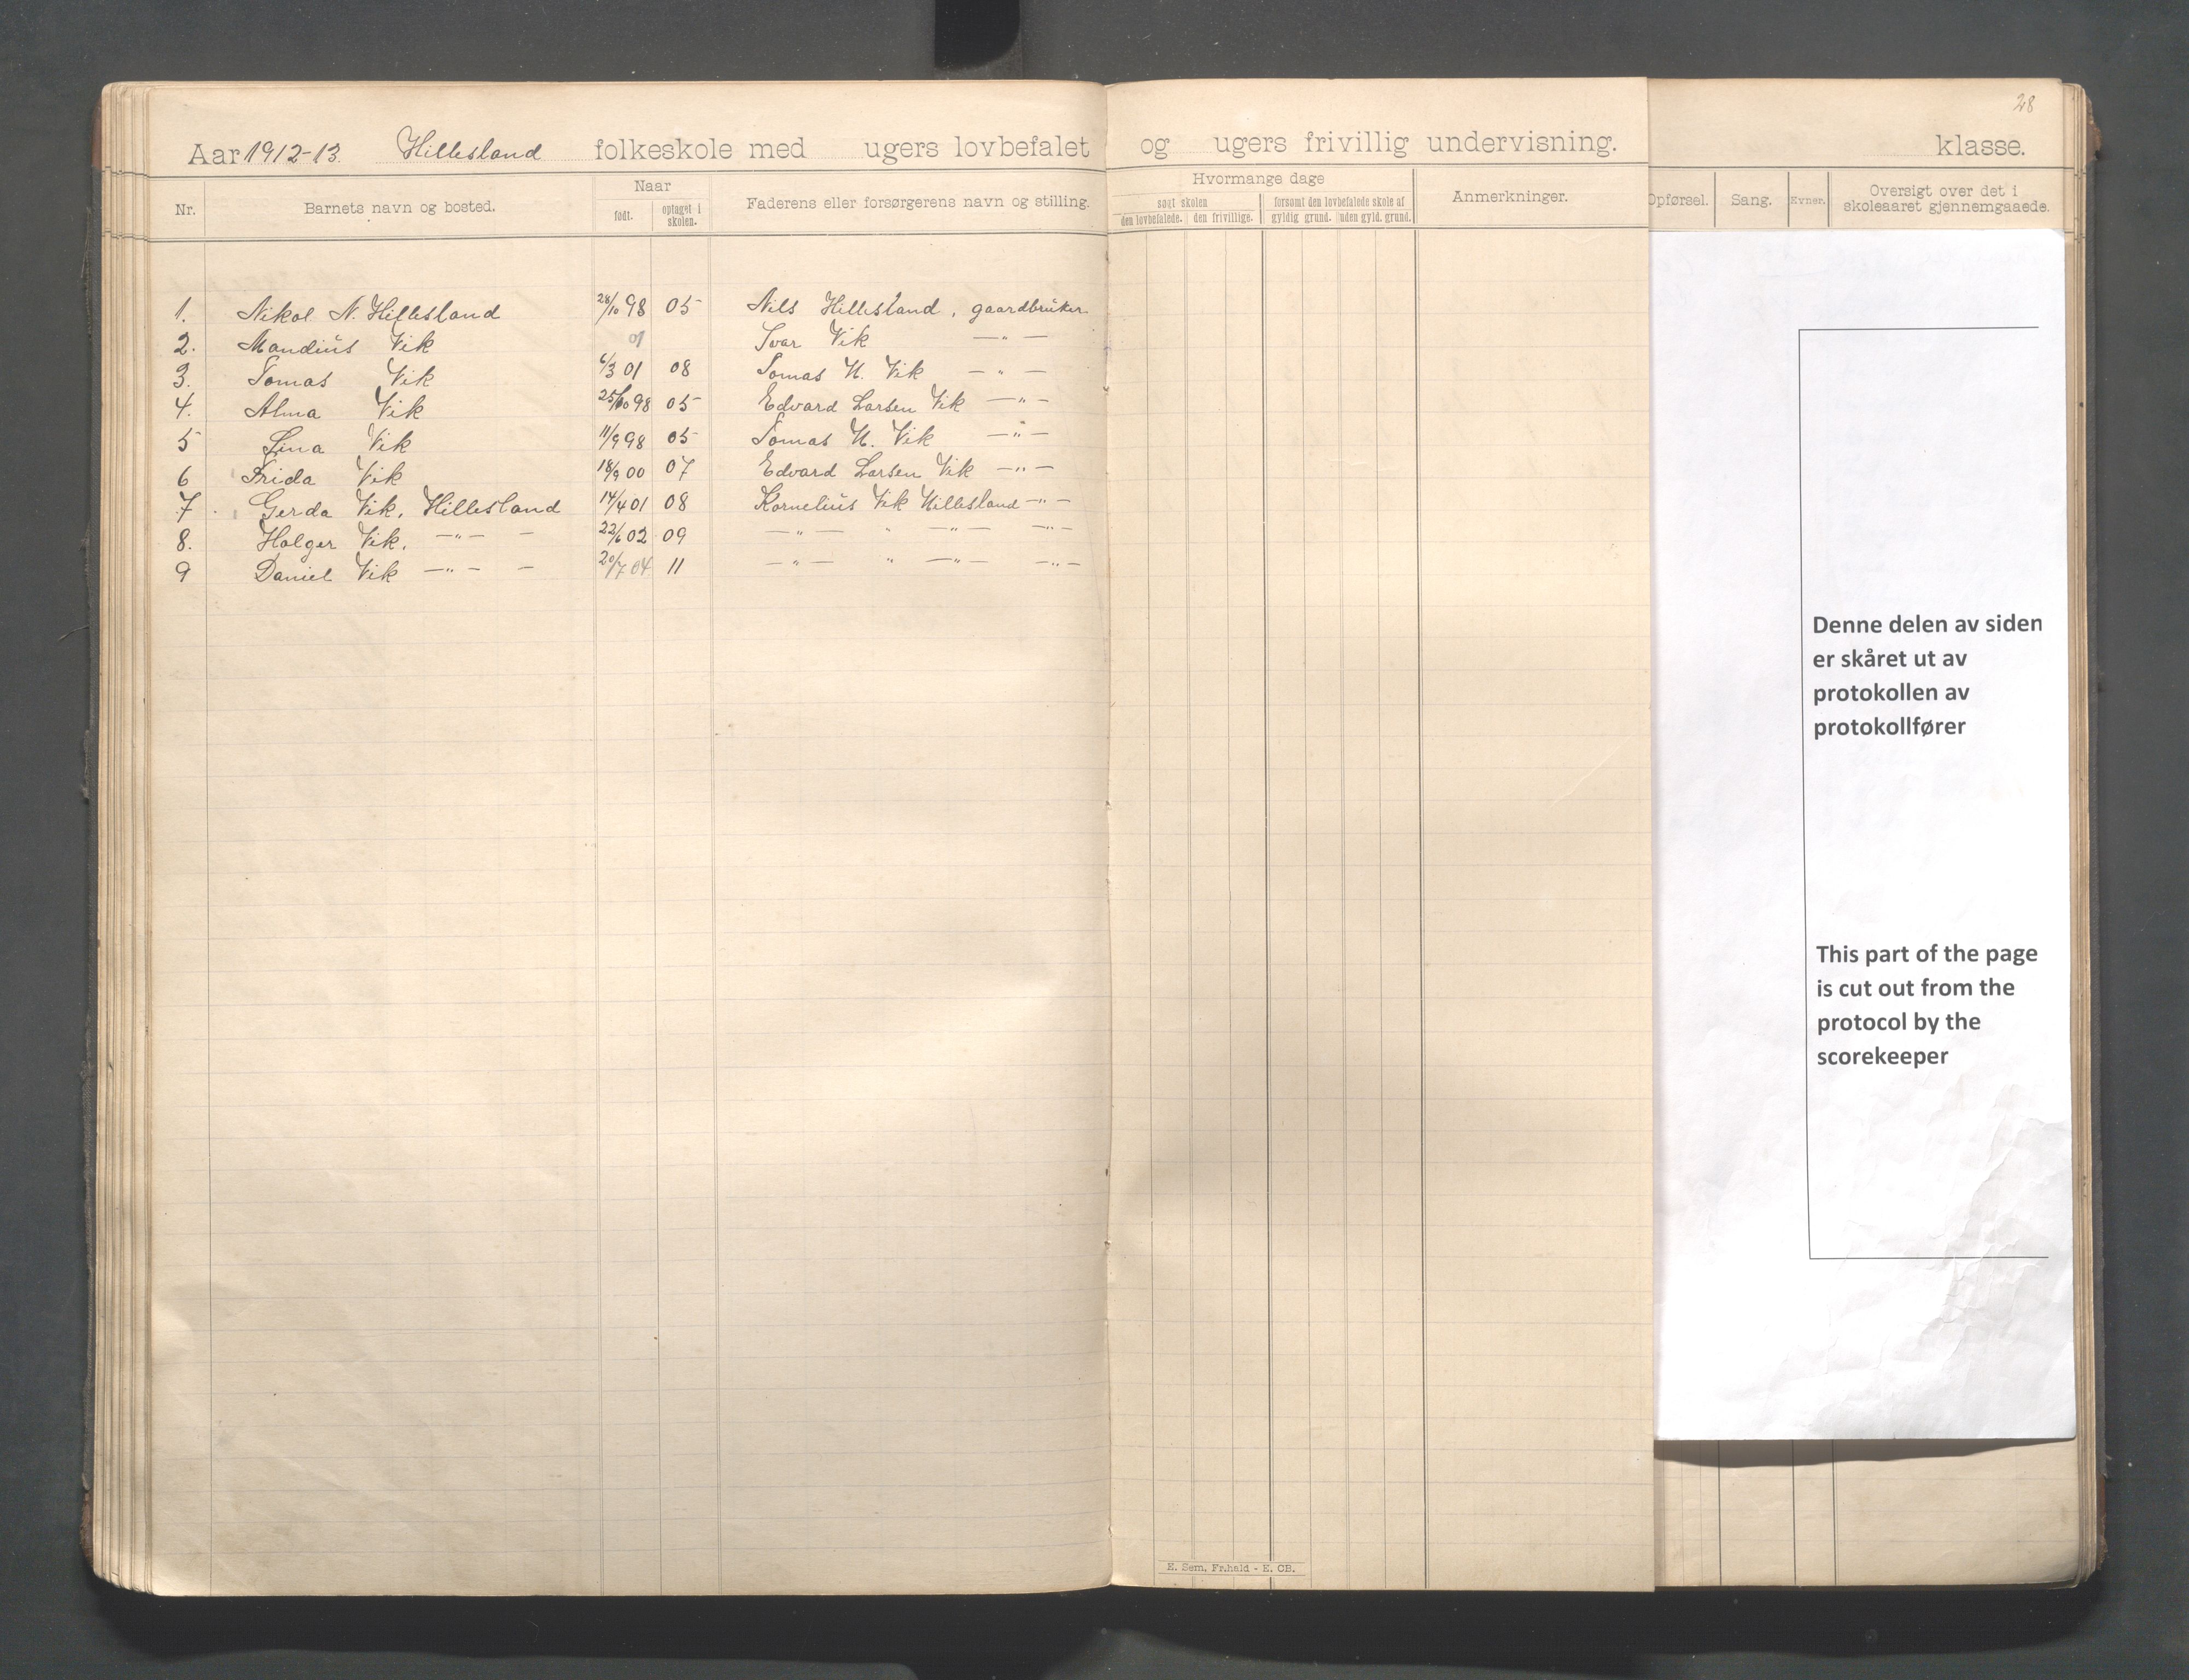 28
Aar 1912-13. Hillesland folkeskole med ugers lovbefalet og ugers frivillig undervisning. klasse.
Nr. Barnets navn og bosted. Naar født. optaget i skolen. Faderens eller forsørgerens navn og stilling. Hvormange dage søgt skolen den lovbefalede. den frivillige. forsømt den lovbefalede skole af gyldig grund. uden gyld. grund. Anmerkninger. Opførsel. Sang. Evner. Oversigt over det i skoleaaret gjennemgaaede.
1. Nikol. N. Hillesland 28/10 98 05 Nils Hillesland, gaardbruker
2. Mandius Vik 01 Ivar Vik — " —
3. Tomas Vik 6/3 01 08 Tomas H. Vik — " —
4. Alma Vik 25/10 98 05 Edvard Larsen Vik — " —
5 Lina Vik 11/9 98 05 Tomas H. Vik — " —
6 Frida Vik 18/9 00 07 Edvard Larsen Vik — " —
7. Gerda Vik, Hillesland 14/4 01 08 Kornelius Vik Hillesland — " —
8. Holger Vik, — " — — 22/6 02 09 — " — " — " — — " —
9 Daniel Vik — " — — 20/7 04 11 — " — " — " — — " —
Denne delen av siden
er skåret ut av
protokollen av
protokollfører
This part of the page
is cut out from the
protocol by the
scorekeeper
E. Sem, Fr.hald - E. CB.